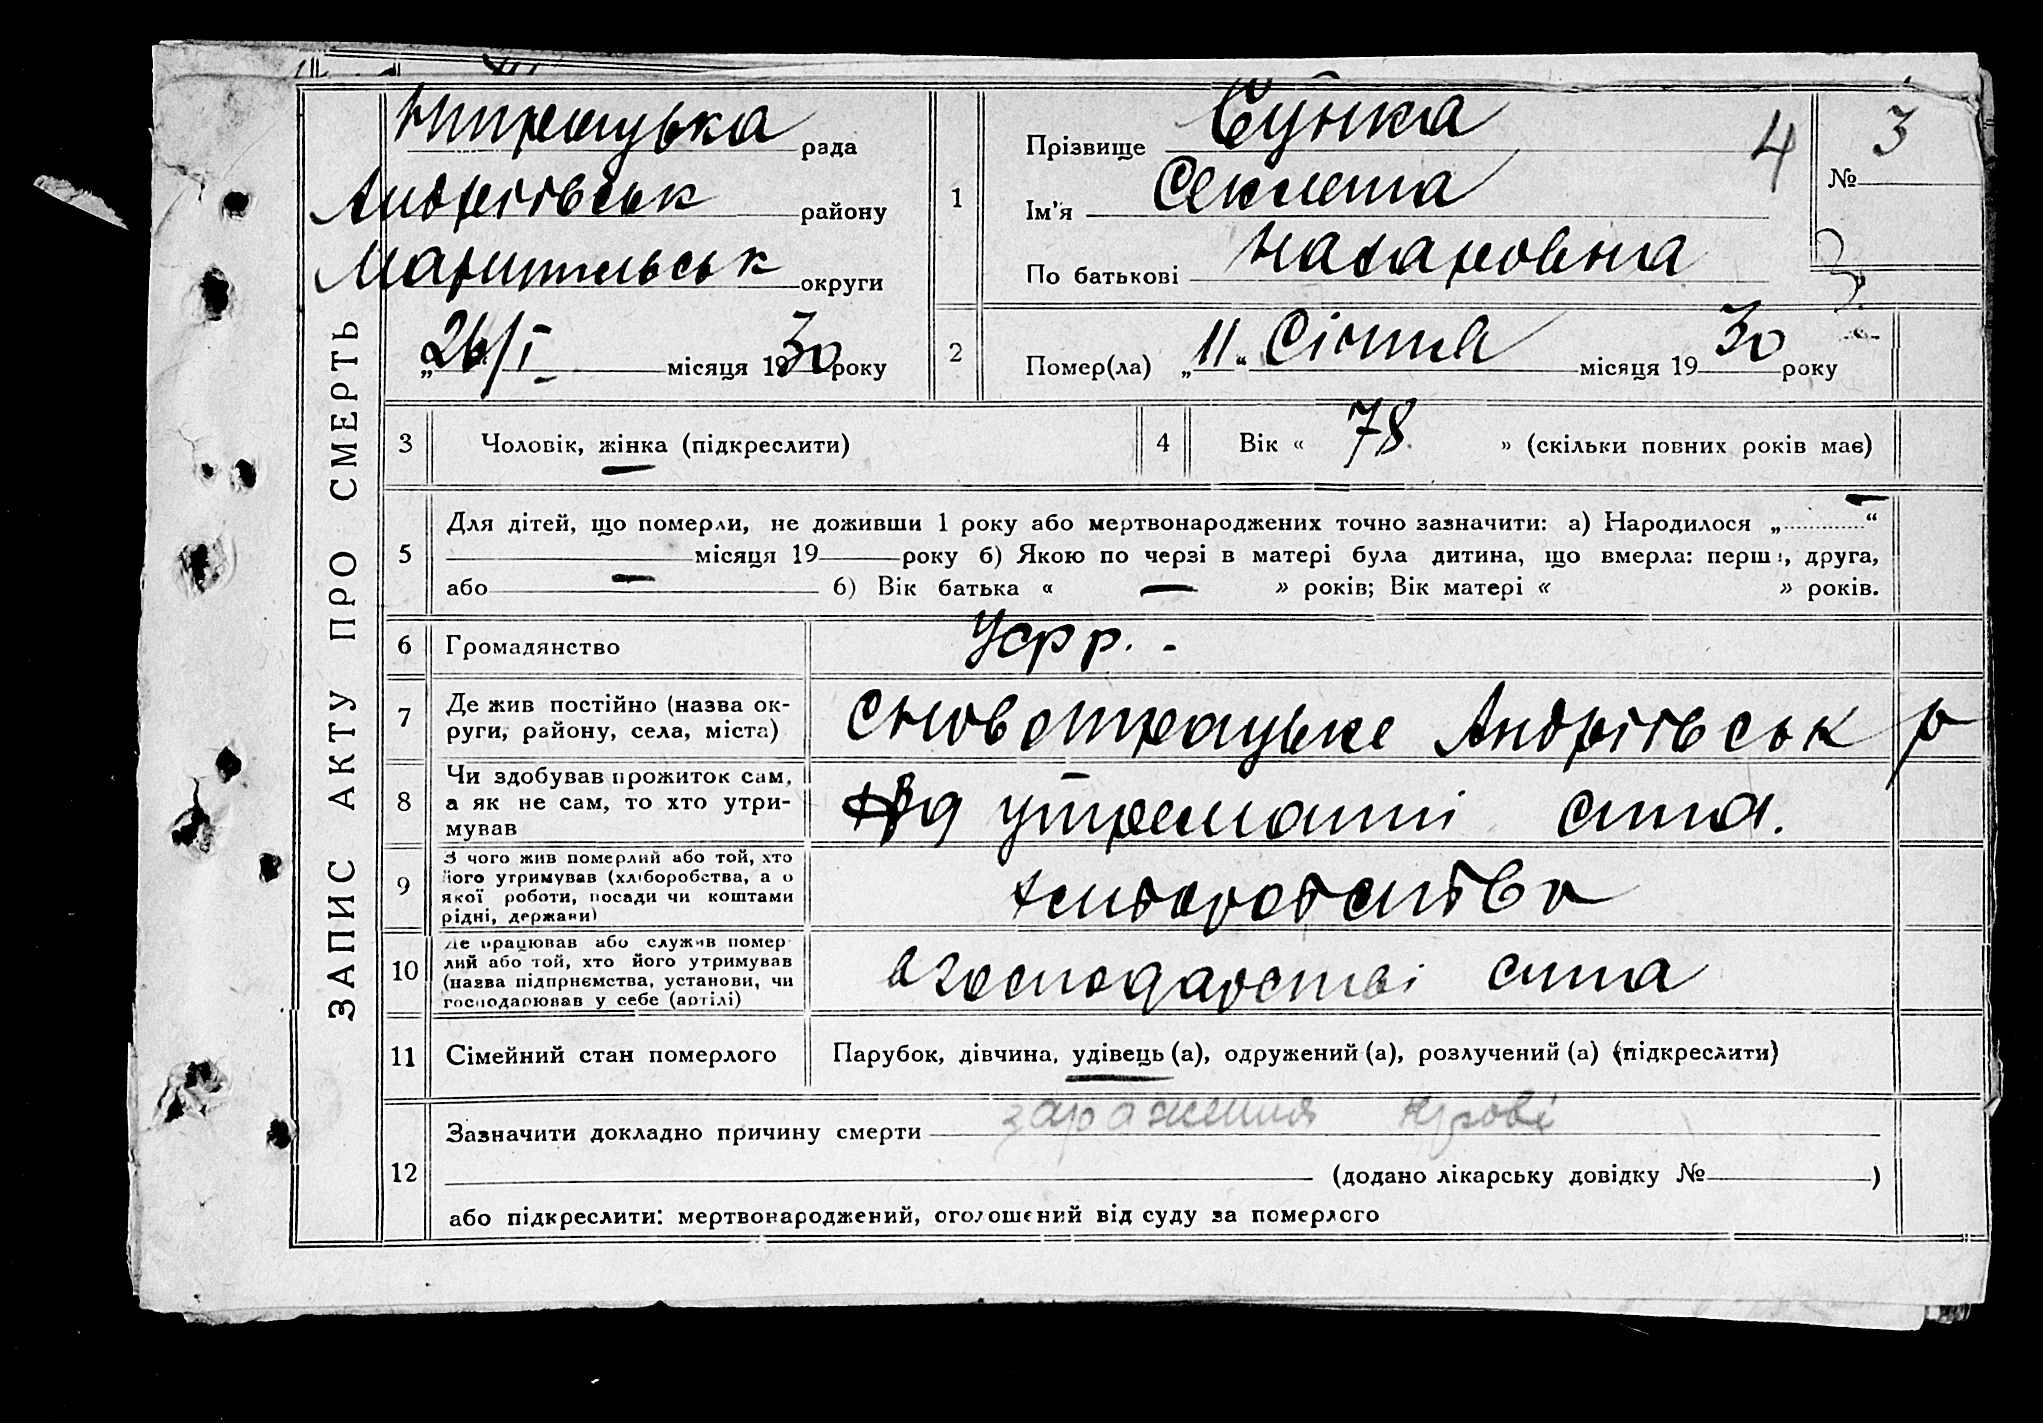 ЗАПИС АКТУ ПРО СМЕРТЬ
рада
Андріївськ району
Маріупільськ округи
„26/I місяця 1930 року
1
Прізвище Сунка
4
№ 3
Ім'я Секлета
По батькові Назаровна
2
Помер(ла) „11“ Січня місяця 1930 року
3 Чоловік, жінка (підкреслити)
4 Вік « 78 » (скільки повних років має)
5 Для дітей, що померли, не доживши 1 року або мертвонароджених точно зазначити: а) Народилося „ — “
місяця 19 року б) Якою по черзі в матері була дитина, що вмерла: перша, друга,
або — б) Вік батька « — » років; Вік матері « » років.
6 Громадянство УСРР. -
7 Де жив постійно (назва округи, району, села, міста) Андріївськ р
8 Чи здобував прожиток сам,
а як не сам, то хто утримував
На утреманні сина.
9 З чого жив померлий або той, хто
його утримував (хліборобства, а о
якої роботи, посади чи коштами
рідні, держави)
хліборобства
10 Де працював або служив помер-
лий або той, хто його утримував
(назва підприємства, установи, чи
господарював у себе (артілі)
в господарстві сина
11 Сімейний стан померлого Парубок, дівчина, удівець (а), одружений (а), розлучений (а) (підкреслити)
12 Зазначити докладно причину смерти зараження крові
(додано лікарську довідку № )
або підкреслити: мертвонароджений, оголошений від суду за померлого